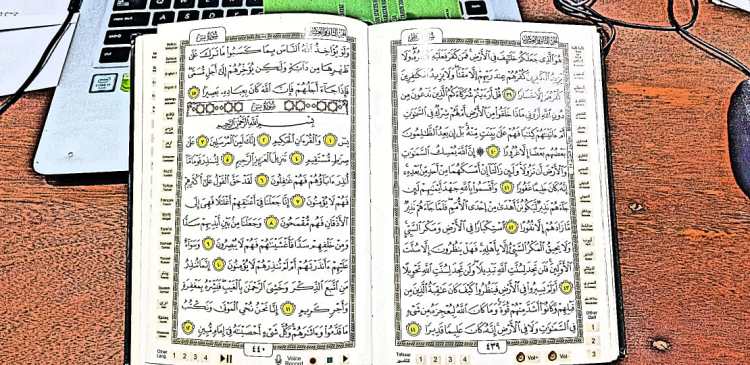 هُوَ ٱلَّذِى جَعَلَكُمْ خَلَٰٓئِفَ فِى ٱلْأَرْضِ فَمَن كَفَرَ فَعَلَيْهِ كُفْرُهُۥ وَلَا
يَزِيدُ ٱلْكَٰفِرِينَ كُفْرُهُمْ عِندَ رَبِّهِمْ إِلَّا مَقْتًا وَلَا يَزِيدُ ٱلْكَٰفِرِينَ
كُفْرُهُمْ إِلَّا خَسَارًا ٣٩ قُلْ أَرَءَيْتُمْ شُرَكَآءَكُمُ ٱلَّذِينَ تَدْعُونَ مِن
دُونِ ٱللَّهِ أَرُونِى مَاذَا خَلَقُوا۟ مِنَ ٱلْأَرْضِ أَمْ لَهُمْ شِرْكٌ فِى ٱلسَّمَٰوَٰتِ
أَمْ ءَاتَيْنَٰهُمْ كِتَٰبًا فَهُمْ عَلَىٰ بَيِّنَتٍ مِّنْهُ بَلْ إِن يَعِدُ ٱلظَّٰلِمُونَ
بَعْضُهُم بَعْضًا إِلَّا غُرُورًا ٤٠ ۞ إِنَّ ٱللَّهَ يُمْسِكُ ٱلسَّمَٰوَٰتِ
وَٱلْأَرْضَ أَن تَزُولَا وَلَئِن زَالَتَآ إِنْ أَمْسَكَهُمَا مِنْ أَحَدٍ مِّنۢ بَعْدِهِۦٓ إِنَّهُۥ
كَانَ حَلِيمًا غَفُورًا ٤١ وَأَقْسَمُوا۟ بِٱللَّهِ جَهْدَ أَيْمَٰنِهِمْ لَئِن
جَآءَهُمْ نَذِيرٌ لَّيَكُونُنَّ أَهْدَىٰ مِنْ إِحْدَى ٱلْأُمَمِ فَلَمَّا جَآءَهُمْ نَذِيرٌ
مَّا زَادَهُمْ إِلَّا نُفُورًا ٤٢ ٱسْتِكْبَارًا فِى ٱلْأَرْضِ وَمَكْرَ ٱلسَّيِّئِ
وَلَا يَحِيقُ ٱلْمَكْرُ ٱلسَّيِّئُ إِلَّا بِأَهْلِهِۦ فَهَلْ يَنظُرُونَ إِلَّا سُنَّتَ
ٱلْأَوَّلِينَ فَلَن تَجِدَ لِسُنَّتِ ٱللَّهِ تَبْدِيلًا وَلَن تَجِدَ لِسُنَّتِ ٱللَّهِ تَحْوِيلًا
٤٣ أَوَلَمْ يَسِيرُوا۟ فِى ٱلْأَرْضِ فَيَنظُرُوا۟ كَيْفَ كَانَ عَٰقِبَةُ ٱلَّذِينَ مِن
قَبْلِهِمْ وَكَانُوٓا۟ أَشَدَّ مِنْهُمْ قُوَّةً وَمَا كَانَ ٱللَّهُ لِيُعْجِزَهُۥ مِن شَىْءٍ
فِى ٱلسَّمَٰوَٰتِ وَلَا فِى ٱلْأَرْضِ إِنَّهُۥ كَانَ عَلِيمًا قَدِيرًا ٤٤
Tafseer 1 2 3 4 ٤٣٩ Vol+ Vol-
سُورَةُ يسٓ
وَلَوْ يُؤَاخِذُ ٱللَّهُ ٱلنَّاسَ بِمَا كَسَبُوا۟ مَا تَرَكَ عَلَىٰ
ظَهْرِهَا مِن دَآبَّةٍ وَلَٰكِن يُؤَخِّرُهُمْ إِلَىٰٓ أَجَلٍ مُّسَمًّى
فَإِذَا جَآءَ أَجَلُهُمْ فَإِنَّ ٱللَّهَ كَانَ بِعِبَادِهِۦ بَصِيرًۢا ٤٥
سُورَةُ يسٓ
بِسْمِ ٱللَّهِ ٱلرَّحْمَٰنِ ٱلرَّحِيمِ
يسٓ ١ وَٱلْقُرْءَانِ ٱلْحَكِيمِ ٢ إِنَّكَ لَمِنَ ٱلْمُرْسَلِينَ ٣ عَلَىٰ
صِرَٰطٍ مُّسْتَقِيمٍ ٤ تَنزِيلَ ٱلْعَزِيزِ ٱلرَّحِيمِ ٥ لِتُنذِرَ قَوْمًا مَّآ
أُنذِرَ ءَابَآؤُهُمْ فَهُمْ غَٰفِلُونَ ٦ لَقَدْ حَقَّ ٱلْقَوْلُ عَلَىٰٓ أَكْثَرِهِمْ
فَهُمْ لَا يُؤْمِنُونَ ٧ إِنَّا جَعَلْنَا فِىٓ أَعْنَٰقِهِمْ أَغْلَٰلًا فَهِىَ إِلَى
ٱلْأَذْقَانِ فَهُم مُّقْمَحُونَ ٨ وَجَعَلْنَا مِنۢ بَيْنِ أَيْدِيهِمْ سَدًّا
وَمِنْ خَلْفِهِمْ سَدًّا فَأَغْشَيْنَٰهُمْ فَهُمْ لَا يُبْصِرُونَ ٩ وَسَوَآءٌ
عَلَيْهِمْ ءَأَنذَرْتَهُمْ أَمْ لَمْ تُنذِرْهُمْ لَا يُؤْمِنُونَ ١٠ إِنَّمَا تُنذِرُ
مَنِ ٱتَّبَعَ ٱلذِّكْرَ وَخَشِىَ ٱلرَّحْمَٰنَ بِٱلْغَيْبِ فَبَشِّرْهُ بِمَغْفِرَةٍ
وَأَجْرٍ كَرِيمٍ ١١ إِنَّا نَحْنُ نُحْىِ ٱلْمَوْتَىٰ وَنَكْتُبُ
مَا قَدَّمُوا۟ وَءَاثَٰرَهُمْ وَكُلَّ شَىْءٍ أَحْصَيْنَٰهُ فِىٓ إِمَامٍ مُّبِينٍ ١٢
Other Lang. 1 2 3 4 ٤٤٠ Voice Record